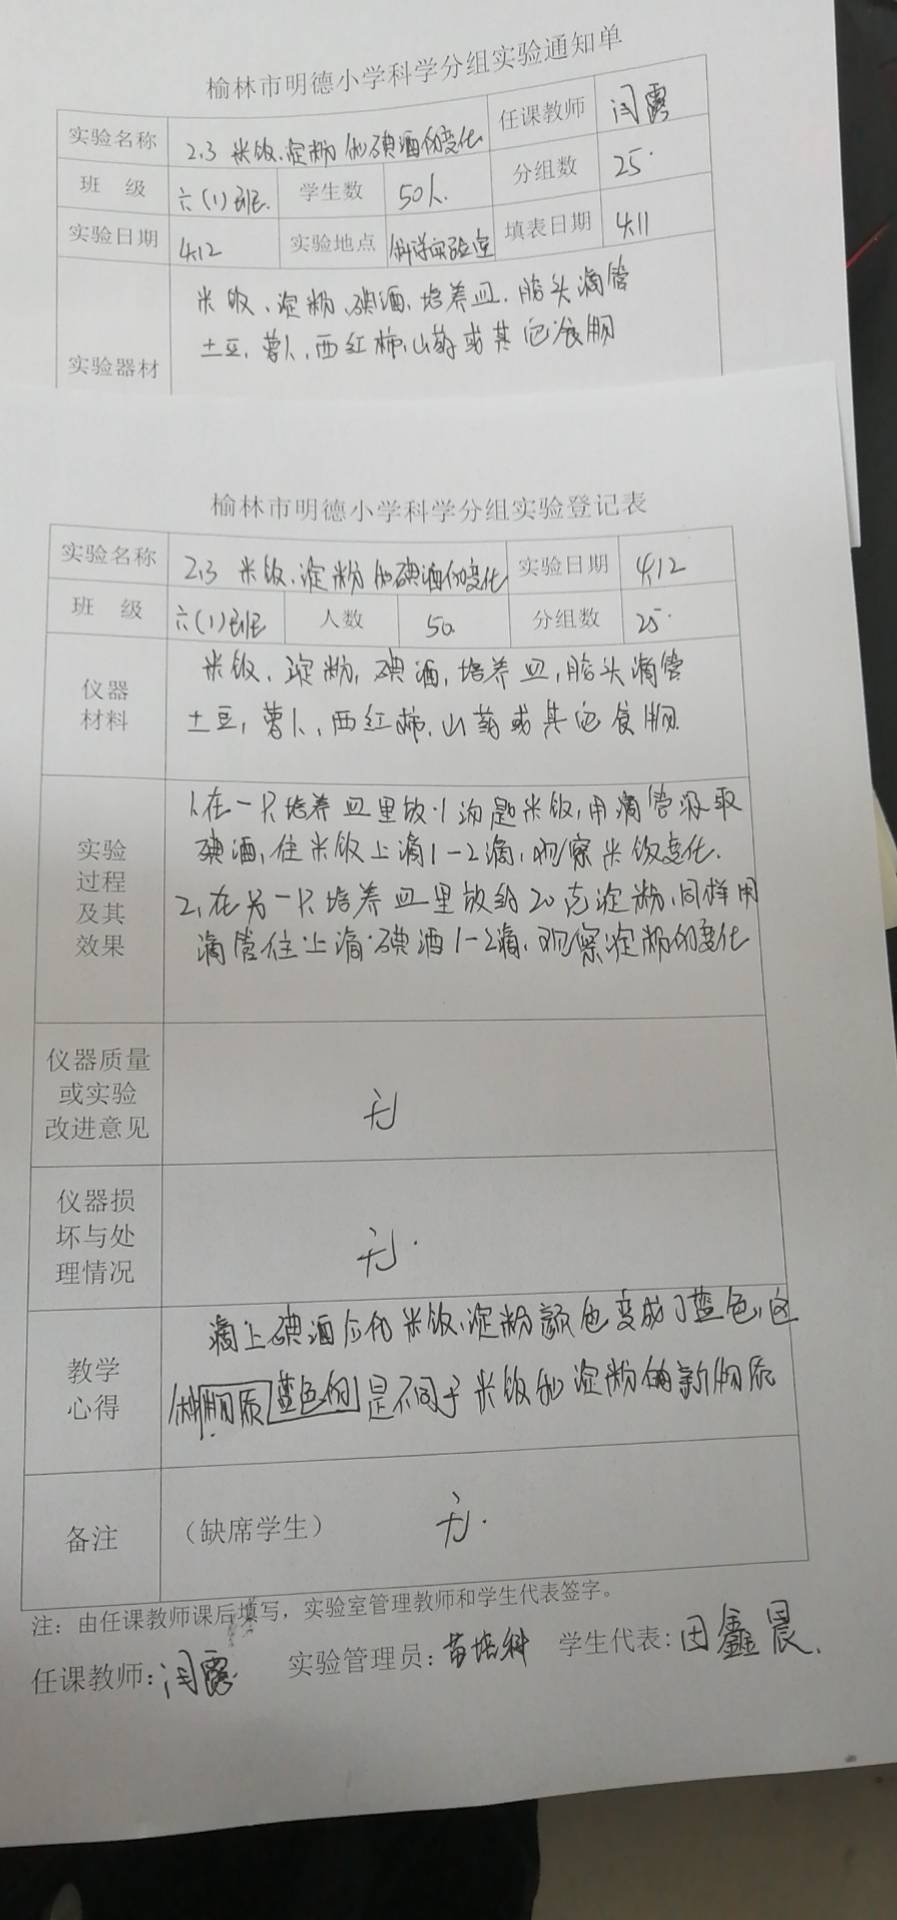 榆林市明德小学科学分组实验通知单
实验名称 2.3 米饭、淀粉和碘酒的变化 任课教师 闫露
班 级 六(1)班. 学生数 50人. 分组数 25.
实验日期 4.12 实验地点 科学实验室 填表日期 4.11
米饭、淀粉、碘酒、培养皿、胶头滴管
土豆、萝卜、西红柿、山药或其它食物
实验器材
榆林市明德小学科学分组实验登记表
实验名称 2.3 米饭、淀粉和碘酒的变化 实验日期 4.12
班 级 六(1)班 人数 50 分组数 25.
仪器
材料
米饭、淀粉,碘酒,培养皿,胶头滴管
土豆,萝卜、西红柿、山药或其它食物
实验
过程
及其
效果
1.在一只培养皿里放1汤匙米饭,用滴管吸取
碘酒,往米饭上滴1-2滴,观察米饭变化.
2.在另一只培养皿里放约20克淀粉,同样用
滴管往上滴碘酒1-2滴,观察淀粉的变化
仪器质量
或实验
改进意见
无
仪器损
坏与处
理情况
无.
教学
心得
滴上碘酒后的米饭、淀粉颜色变成了蓝色,这
种物质蓝色的是不同于米饭和淀粉的新物质
备注 (缺席学生) 无.
注:由任课教师课后填写,实验室管理教师和学生代表签字。
任课教师:闫露 实验管理员:苗培科 学生代表:田鑫晨.